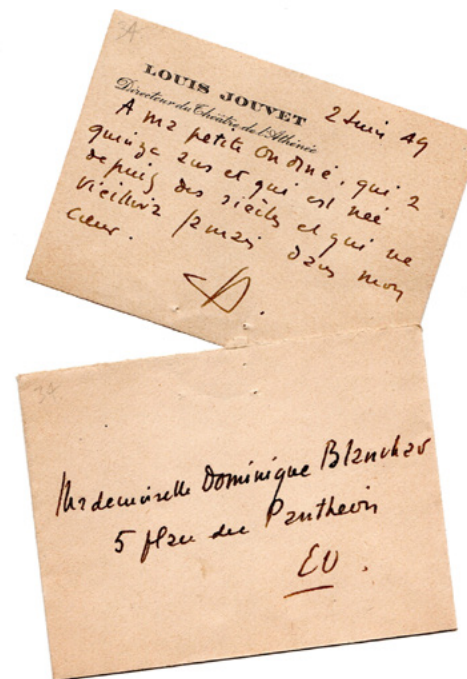 LOUIS JOUVET
Directeur du Théâtre de l'Athénée
2 Juin 49
A ma petite Ondine, qui a
quinze ans et qui est née
depuis des siècles et qui ne
vieillira jamais dans mon
cœur.
Mademoiselle Dominique Blanchar
5 place du Panthéon
EV.